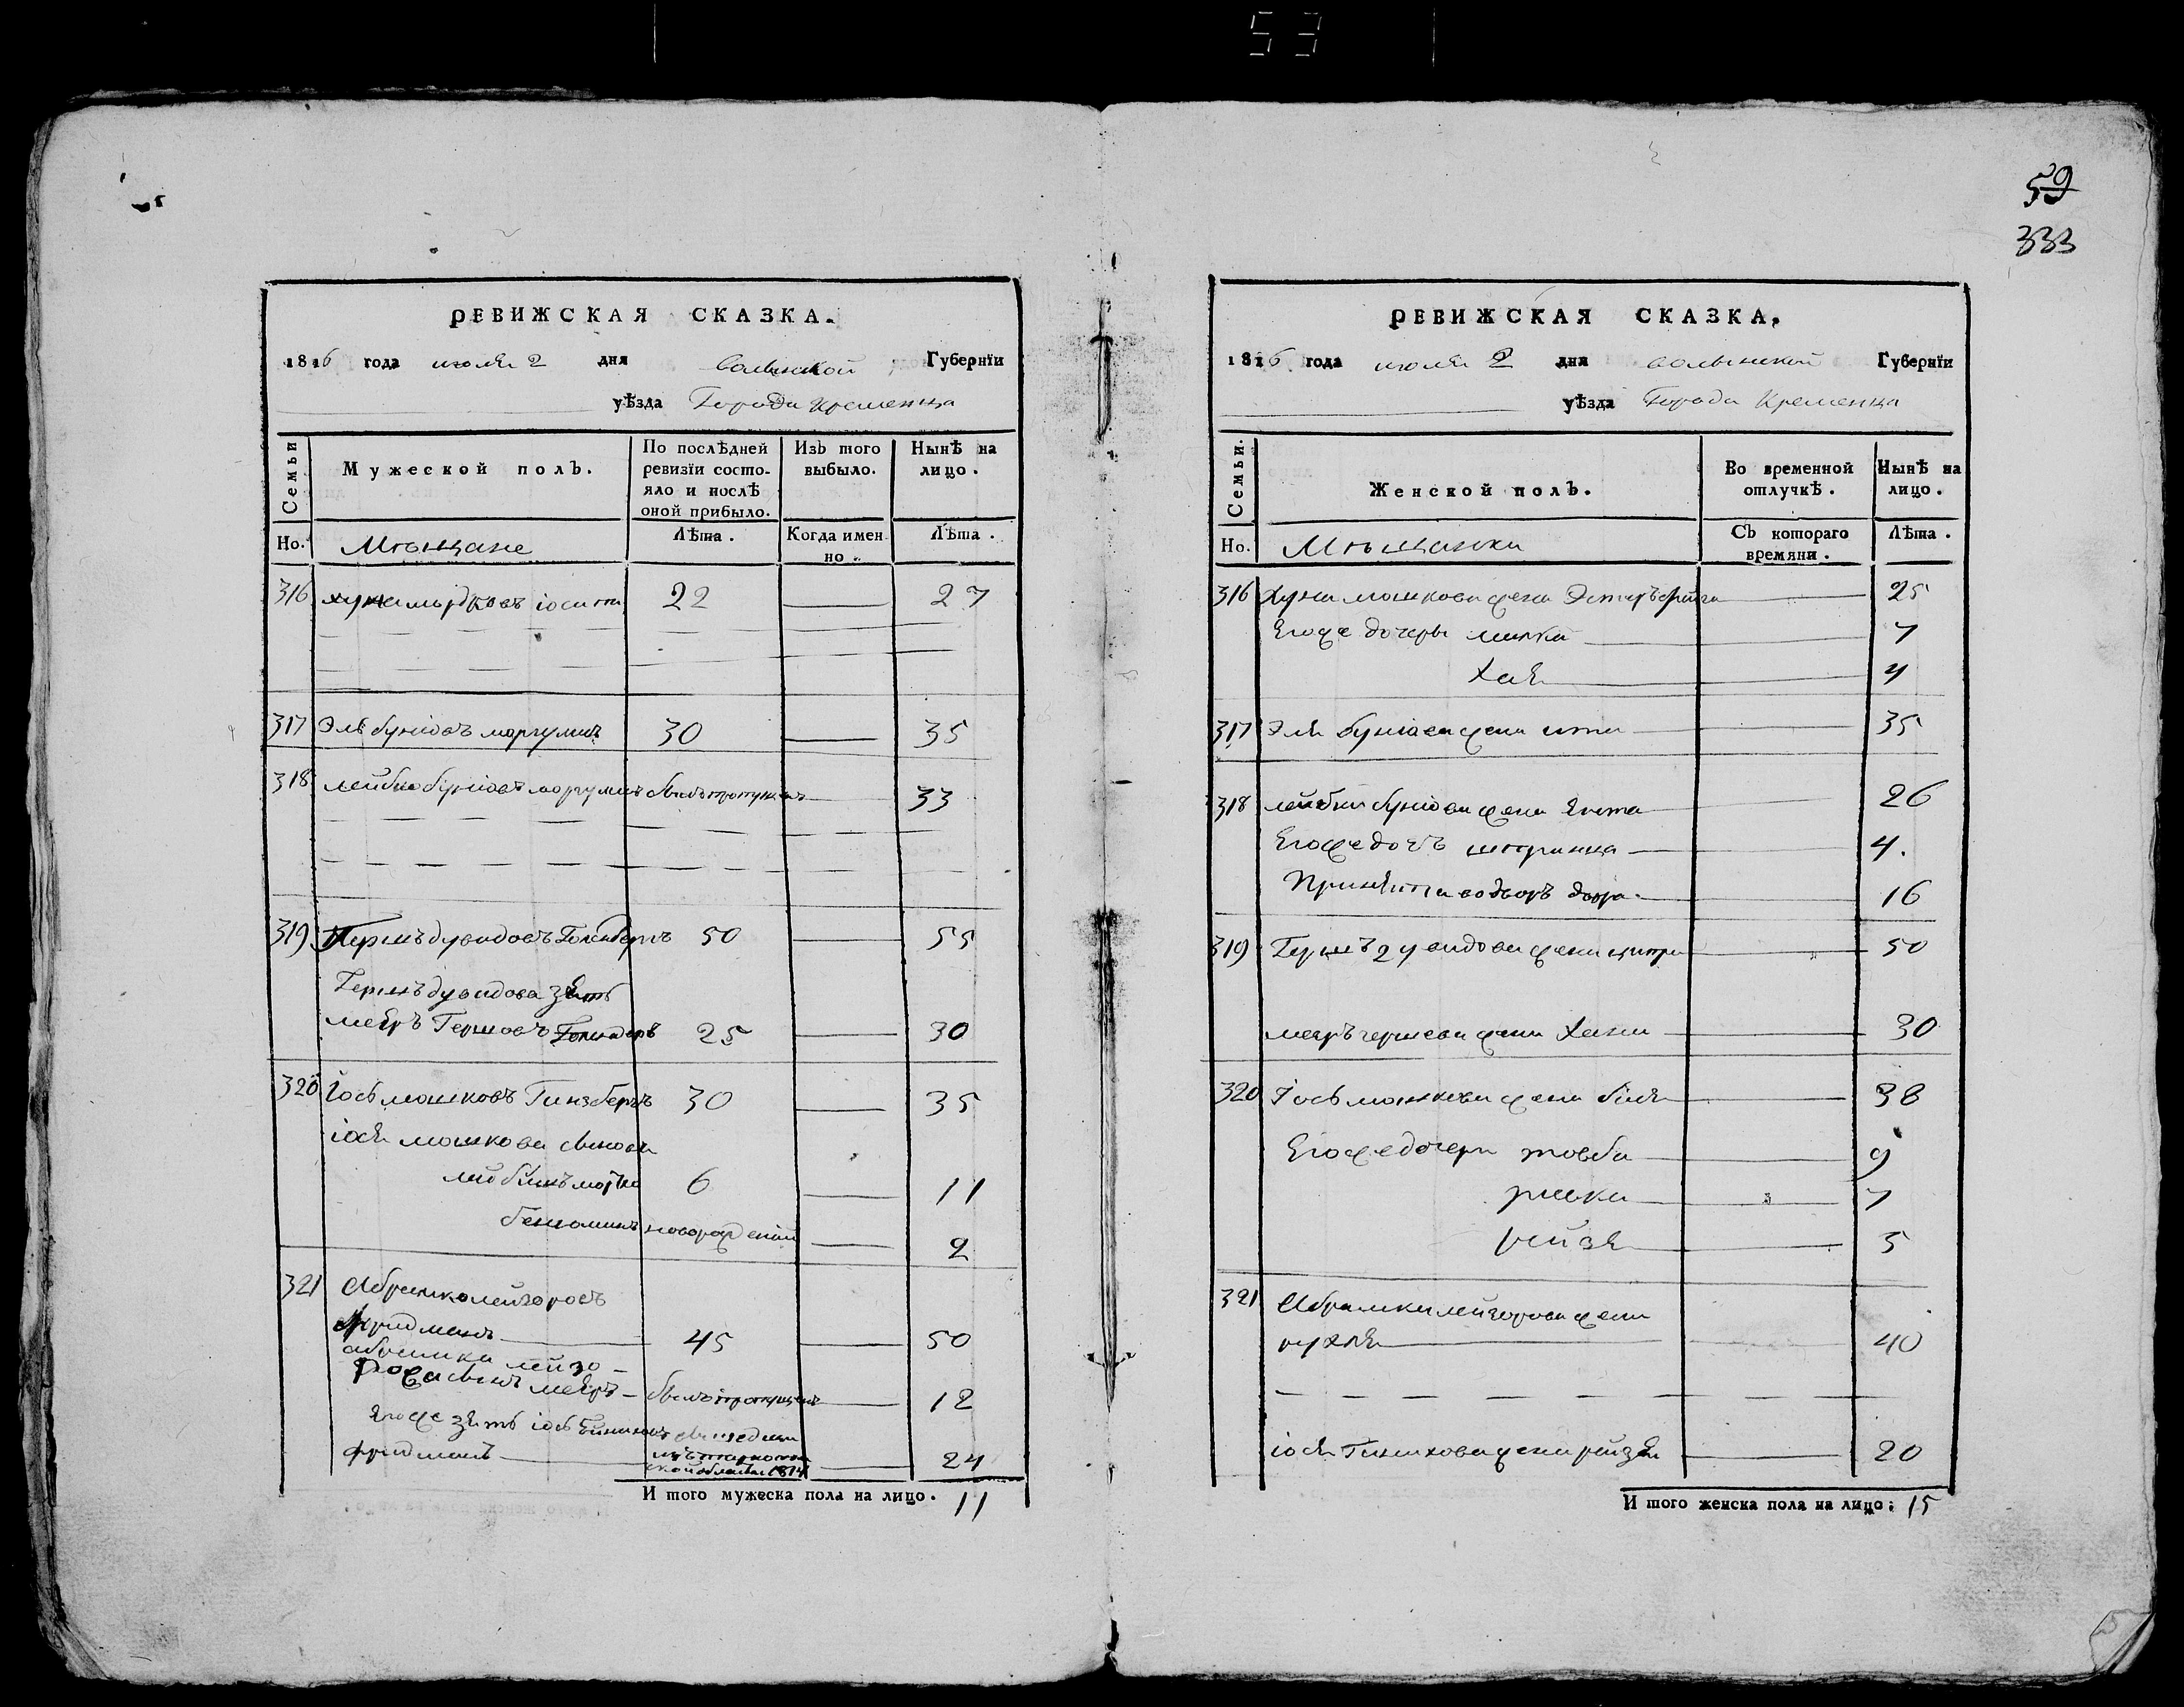 53
59
333
РЕВИЖСКАЯ СКАЗКА.
1816 года июля 2 дня Волынской Губернїи
уѣзда Города Кременца
Семьи
Мужеской полъ.
По послѣдней ревизїи состояло и послѣ оной прибыло.
Изъ того выбыло.
Нынѣ на лицо.
Но. Мѣщане
Лѣта. Когда именно. Лѣта.
316 22 27
317 Эль буніовъ маргулисъ 30 35
318 лейбко буніовъ маргулисъ былъ пропущенъ 33
319 Гершъ дувидовъ 50 55
Гершъ дувидова зять
меяръ Гершовъ 25 30
320 Іось мошковъ Гинзбергъ 30 35
іося мошкова сыновя
6 11
беніоминъ новорожденій 2
321 Абрамко лейзоровъ
фридманъ 45 50
абрамка лейзо-
рова сынъ меяръ былъ пропущенъ 12
Егоже зять іось
фридманъ 1814 24
И того мужеска пола на лицо. 11
РЕВИЖСКАЯ СКАЗКА.
1816 года июля 2 дня волынской Губернїи
уѣзда Города Кременца
Семьи.
Женской полъ.
Во временной отлучкѣ.
Нынѣ на лицо.
Но. Мѣщанки
Съ котораго времяни. Лѣта.
316 Хуна мошкова жена 25
Егоже дочеры милка 7
Хая 4
317 Эля буніова жена ита 35
318 лейбки буніова жена Ента 26
Егоже дочъ шпринца 4.
Принята во дворъ двора 16
319 Гершъ дувидова жена ципра 50
меяръ гершова жена Хана 30
320 Іось мошкова жена біля 38
Егоже дочери товба 9
ривка 7
рейзя 5
321 Абрамки лейзорова жена
рухля 40
іося жена рейзя 20
И того женска пола на лицо: 15